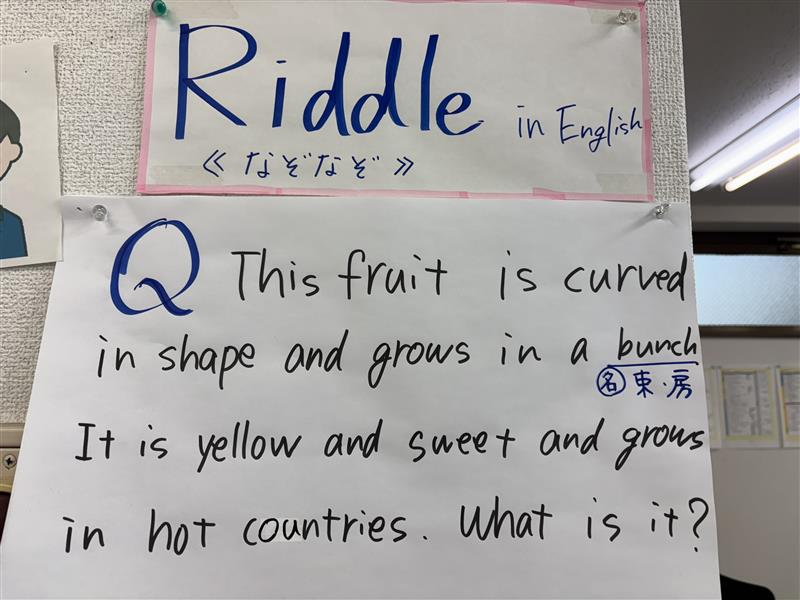 Riddle in English
《なぞなぞ》
Q This fruit is curved
in shape and grows in a bunch
名 束・房
It is yellow and sweet and grows
in hot countries. What is it?